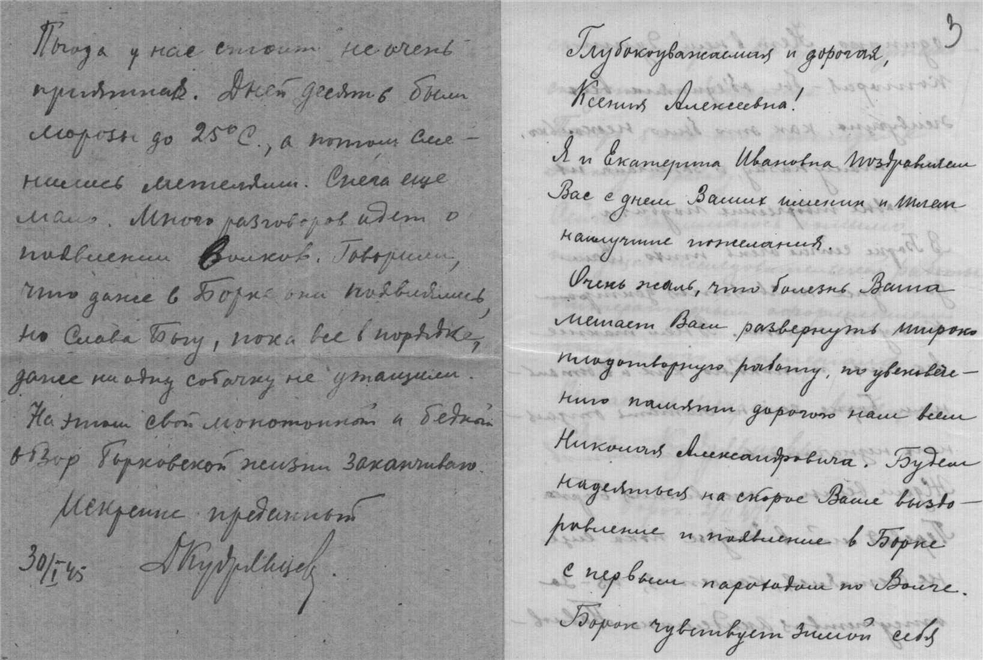 Погода у нас стоит не очень
приятная. Дней десять были
морозы до 25° С., а потом сме-
нились метелями. Снега еще
мало. Много разговоров идет о
появлении волков. Говорили,
что даже в Борке они появлялись,
но Слава Богу, пока все в порядке,
даже ни одну собачку не утащили.
На этом свой монотонный и бедный
обзор борковской жизни заканчиваю.
Искренне преданный
30/I 45 ДКудрявцев.
3
Глубокоуважаемая и дорогая,
Ксения Алексеевна!
Я и Екатерина Ивановна поздравляем
Вас с днем Ваших именин и шлем
наилучшие пожелания.
Очень жаль, что болезнь Ваша
мешает Вам развернуть широко
плодотворную работу, по увековече-
нию памяти дорогого нам всем
Николая Александровича. Будем
надеяться на скорое Ваше выздо-
ровление и появление в Борке
с первым пароходом по Волге.
Борок чувствует зимой себя